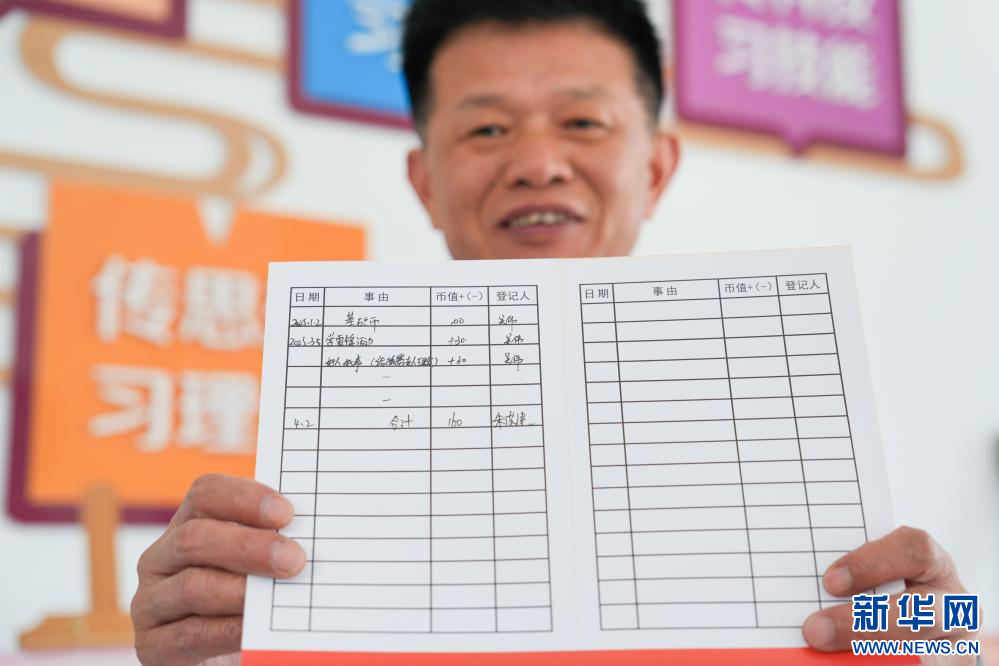 习技能
传思
习理
日期 事由 币值+(-) 登记人
2025.1.2 基础币 100
2025.3.5 学雷锋活动 +30
好人好事 +30
4.2 合计 160
日期 事由 币值+(-) 登记人
新华网
WWW.NEWS.CN